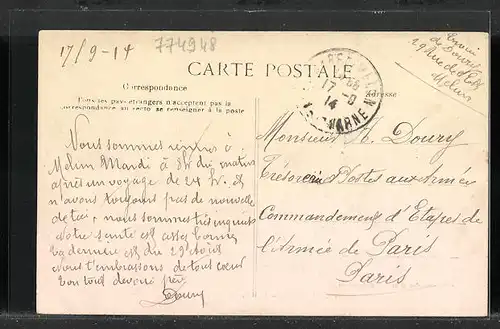 17/9-14
774948
CARTE POSTALE
Correspondance
Tous les pays étrangers n'acceptent pas la
correspondance au verso se renseigner à la poste
Adresse
Envoi
de Doury
Melun
17-9
14
MARNE
Nous sommes rentrés à
Melun Mardi à 8h du matin
après un voyage de 24 hr. et
n'avons toujours pas de nouvelle
de toi, nous sommes très inquiets
notre santé est assez bonne,
ta dernière est du 29 août
nous t'embrassons de tout cœur
ton tout dévoué père
Doury
Monsieur H. Doury
Trésorerie & Postes aux Armées
Commandement d'Etapes de
l'Armée de Paris
Paris